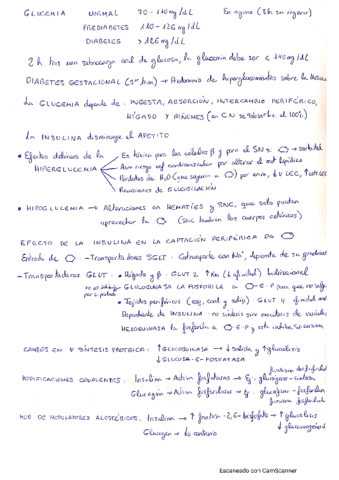 GLUCEMIA NORMAL 70 - 110 mg/dL En ayuno (8h sin ingerir)
PREDIABETES 110 - 126 mg/dL
DIABETES > 126 mg/dL
2 h tras una sobrecarga oral de glucosa, la glucemia debe ser < 140 mg/dL
DIABETES GESTACIONAL → Predominio de hiperglucemiantes sobre la insulina
La GLUCEMIA depende de: INGESTA, ABSORCIÓN, INTERCAMBIO PERIFÉRICO,
HÍGADO Y RIÑONES (en C.N se reabsorbe el 100%)
La INSULINA disminuye el APETITO
• Efectos de la HIPERGLUCEMIA
Es tóxica para las células β y para el SNC
Aum riesgo enf cardiovascular por alterar el met lipídico
Pérdidas de H2O por orina, ↓V LEC
Reacciones de GLUCOSILACIÓN
• HIPOGLUCEMIA → Alteraciones en HEMATÍES y SNC, que solo pueden
aprovechar la (SNC también los cuerpos cetónicos)
EFECTO DE LA INSULINA EN LA CAPTACIÓN PERIFÉRICA DE
Entrada de - Transportadores SGLT - Cotransporte con Na+, depende de su gradiente
- Transportadores GLUT • Hígado y β - GLUT 2 ↑ Km (↓ afinidad) Bidireccional
GLUCOQUINASA LA FOSFORILA -6-P para que no salga
• Tejidos periféricos GLUT 4 afinidad
Dependiente de INSULINA: no
HEXOQUINASA la fosforila a -6-P y esta inhibe
CAMBIOS EN V SÍNTESIS PROTEICA: ↑ GLUCOQUINASA → ↓ salida y ↑ glucólisis
↓ GLUCOSA-6-FOSFATASA
MODIFICACIONES COVALENTES: Insulina → Activa fosfatasas → Ej. glucógeno-sintasa
Glucagón → Activa fosforilasas → Ej. glucógeno-fosforilasa
MOD DE MODULADORES ALOSTÉRICOS: Insulina → ↑ fructosa-2,6-bisfosfato → ↑ glucólisis
↓ gluconeogénesis
Glucagón → Lo contrario
Escaneado con CamScanner